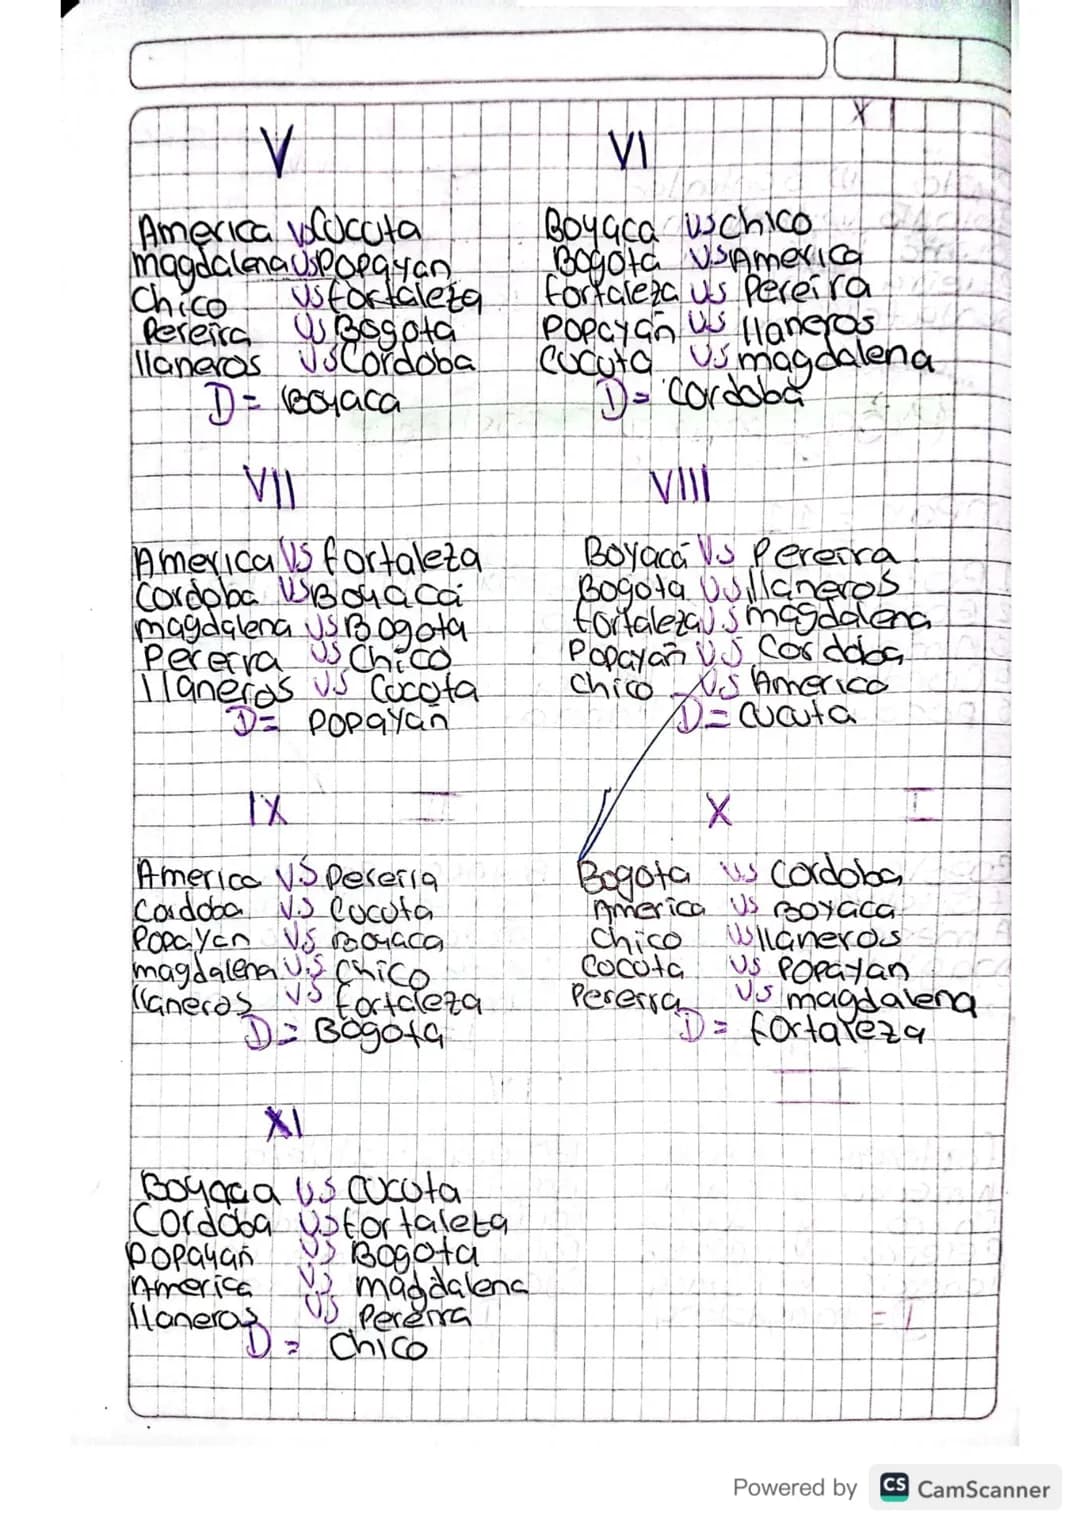 V
America vs Cucuta
magdalena vs Popayan
Chico vs fortaleza
Pereira vs Bogota
llaneros vs Cordoba
D= Boyaca
VI
Boyaca vs chico
Bogota vs America
fortaleza vs Pereira
Popayan vs llaneros
Cucuta vs magdalena
D= Cordoba
VII
America vs fortaleza
Cordoba vs Boyaca
magdalena vs Bogota
Pereira vs Chico
llaneros vs Cucuta
D= Popayan
VIII
Boyacá vs Pereira
Bogota vs llaneros
fortaleza vs magdalena
Popayan vs Cordoba
Chico vs America
D= Cucuta
IX
America vs Pereria
Cordoba vs Cucuta
Popayan vs Boyaca
magdalena vs Chico
llaneros vs fortaleza
D= Bogota
X
Bogota vs Cordoba
America vs Boyaca
Chico vs llaneros
Cocota vs Popayan
Pereira vs magdalena
D= fortaleza
XI
Boyaca vs Cucuta
Cordoba vs fortaleza
Popayan vs Bogota
America vs magdalena
llaneros vs Pereira
D= Chico
Powered by CS CamScanner